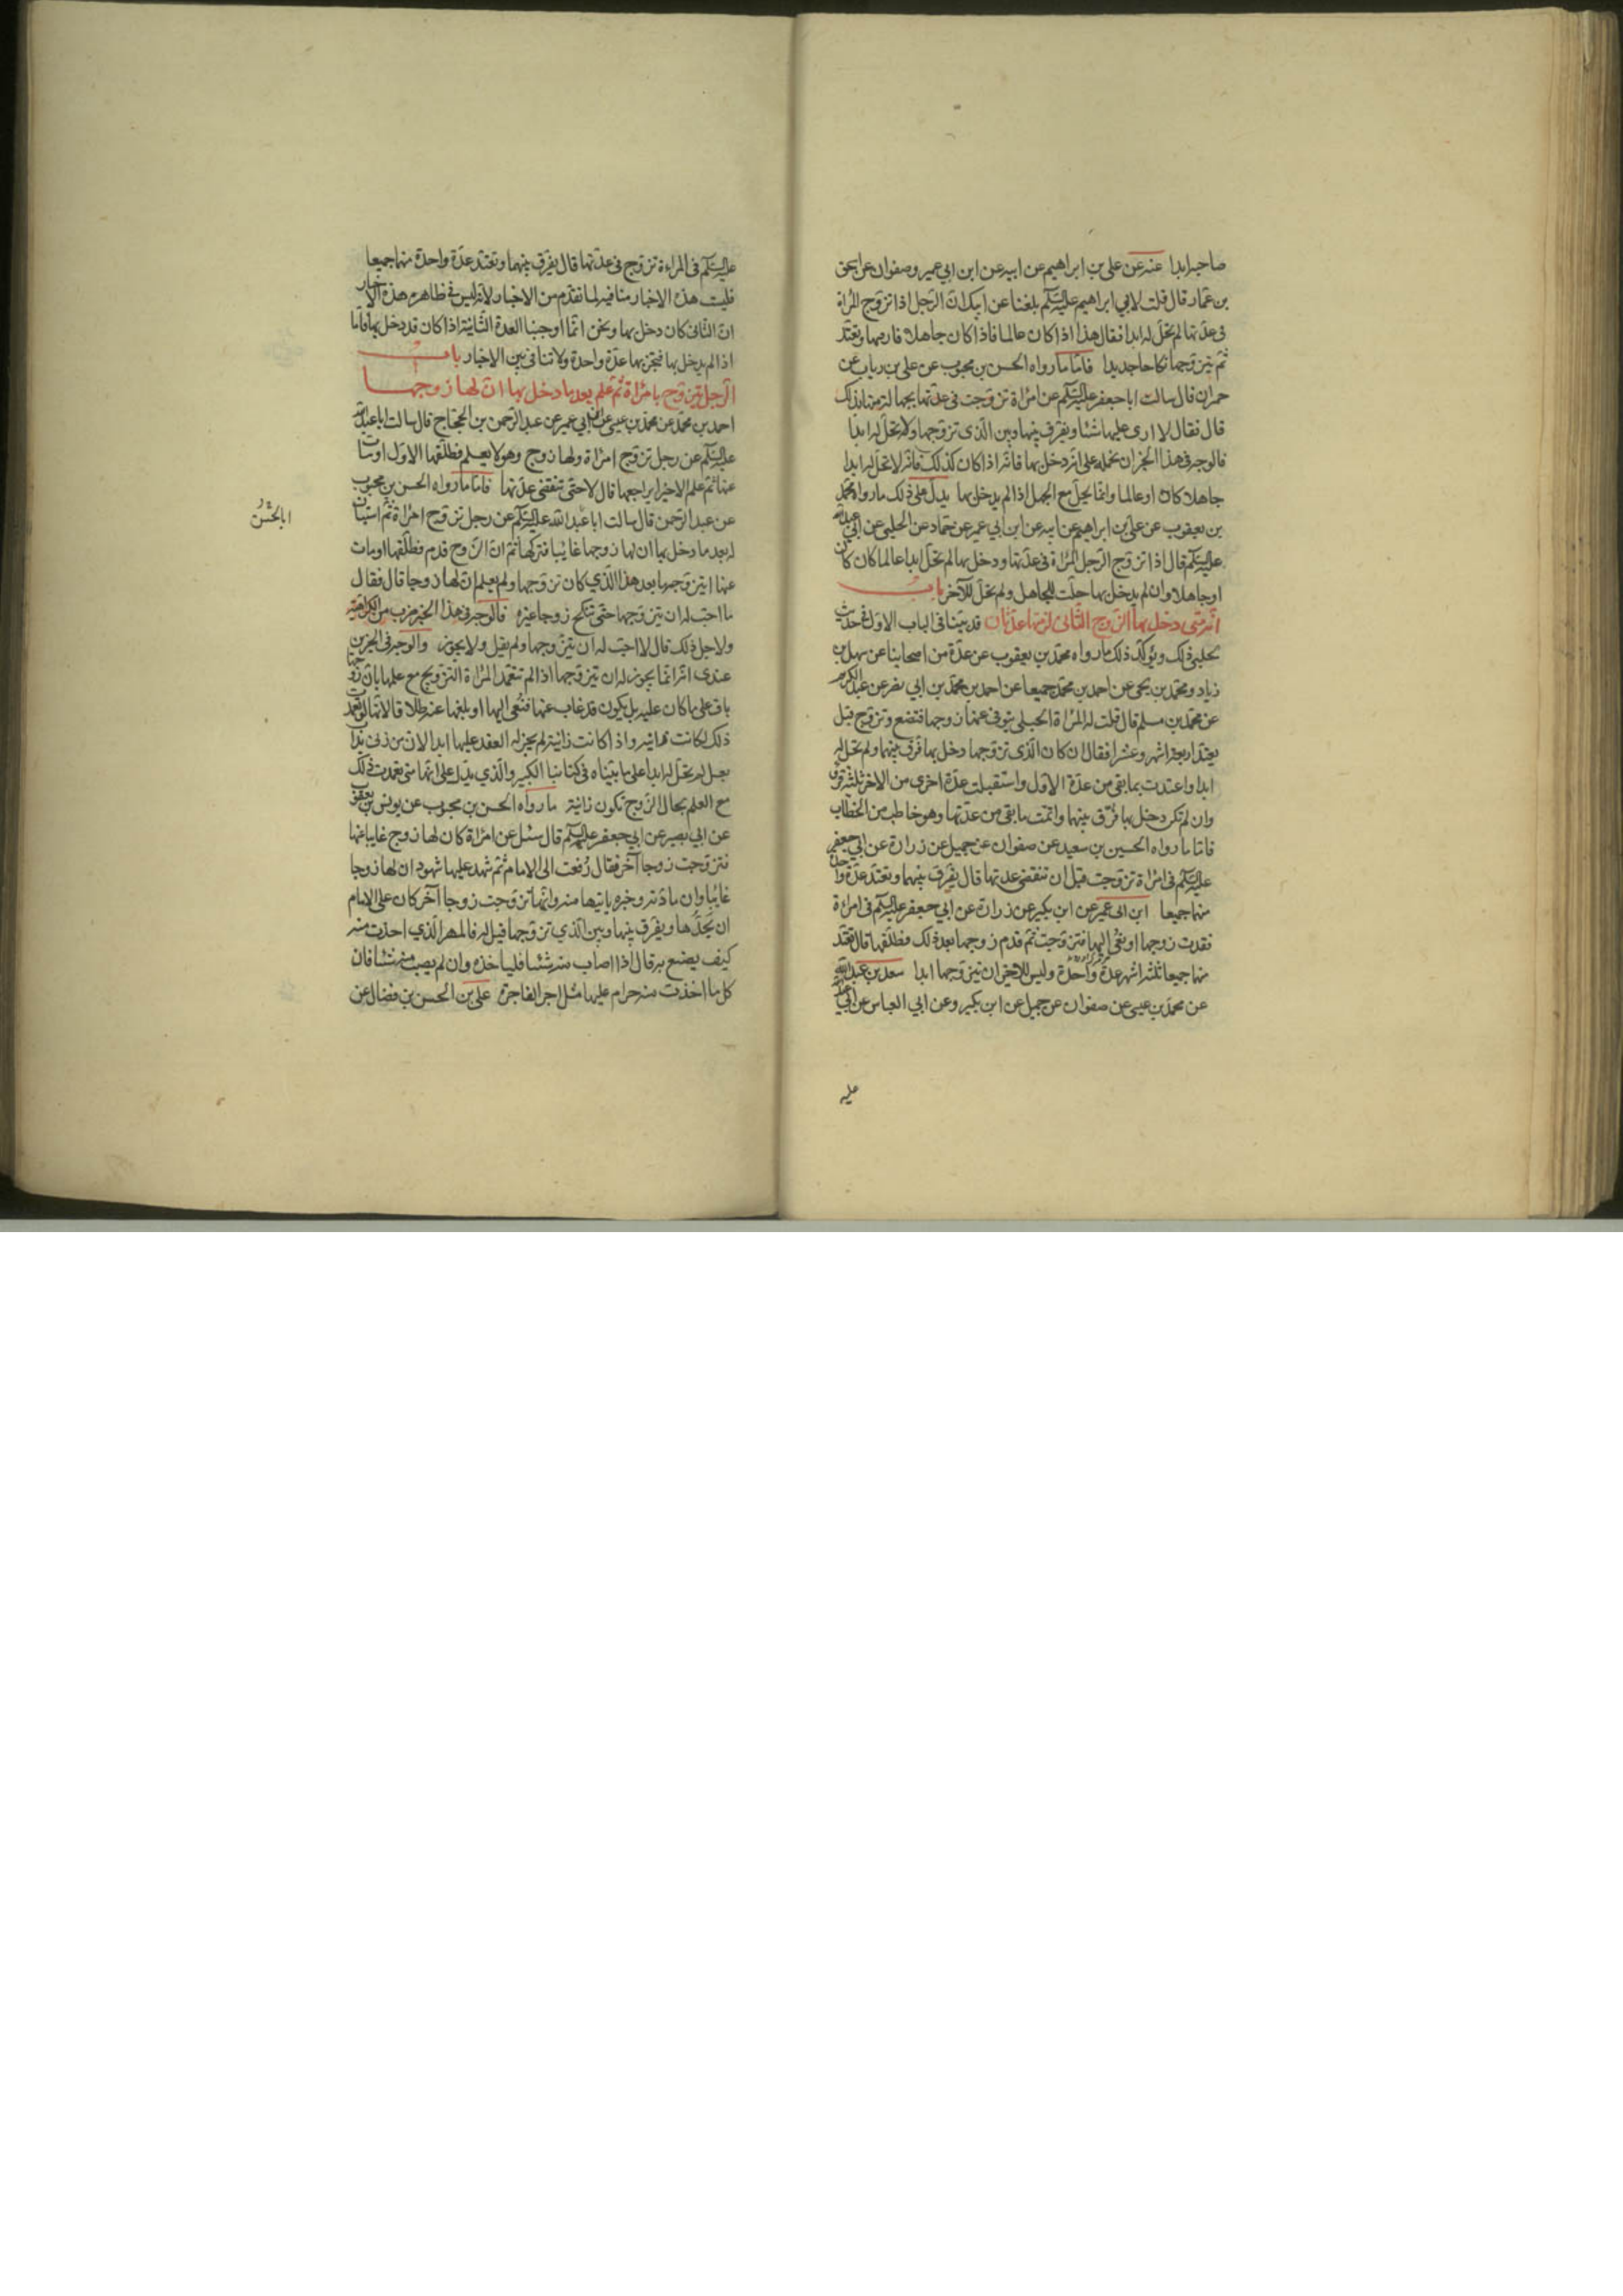 صاحبه ابدا عنه عن علي بن ابراهيم عن ابيه عن ابن ابي عمير وصفوان عن اسحق
بن عمار قال قلت لابي ابراهيم عليه السلم بلغنا عن ابيك ان الرجل اذا تزوج المراة
في عدتها لم تحل له ابدا فقال هذا اذا كان عالما فاذا كان جاهلا فارقها وتعتد
ثم يتزوجها نكاحا جديدا فاما ما رواه الحسن بن محبوب عن علي بن رياب عن
حمران قال سالت ابا جعفر عليه السلم عن امراة تزوجت في عدتها بجهالة منها بذلك
قال فقال لا ارى عليها شيئا ويفرق بينها وبين الذي تزوجها ولا تحل له ابدا
فالوجه في هذا الخبر ان نحمله على انه دخل بها فانه اذا كان كذلك فانه لا تحل له ابدا
جاهلا كان او عالما وانما يحل مع الجهل اذا لم يدخل بها يدل على ذلك ما رواه محمد
بن يعقوب عن علي بن ابراهيم عن ابيه عن ابن ابي عمير عن حماد عن الحلبي عن ابي عبدالله
عليه السلم قال اذا تزوج الرجل المراة في عدتها ودخل بها لم تحل ابدا عالما كان كان
او جاهلا وان لم يدخل بها حلت للجاهل ولم تحل للآخر باب
انه متى دخل بها الزوج الثاني لزمتها عدتان قد بينا في الباب الاول في حديث
الحلبي ذلك ويؤكد ذلك ما رواه محمد بن يعقوب عن عدة من اصحابنا عن سهل بن
زياد ومحمد بن يحيى عن احمد بن محمد جميعا عن احمد بن محمد بن ابي نصر عن عبد الكريم
عن محمد بن مسلم قال قلت له المراة الحبلى يتوفى عنها زوجها فتضع وتزوج قبل
يعتد اربعة اشهر وعشرا فقال ان كان الذي تزوجها دخل بها فرق بينهما ولم تحل له
ابدا واعتدت بما بقي من عدة الاول واستقبلت عدة اخرى من الاخر ثلثة قروء
وان لم تكن دخل بها فرق بينهما واتمت ما بقي من عدتها وهو خاطب من الخطاب
فاما ما رواه الحسين بن سعيد عن صفوان عن جميل عن زرارة عن ابي جعفر
عليه السلم في امراة تزوجت قبل ان تنقضي عدتها قال يفرق بينهما وتعتد عدة واحدة
منهما جميعا ابن ابي عمير عن ابن بكير عن زرارة عن ابي جعفر عليه السلم في امراة
فقدت زوجها او نعي اليها فتزوجت ثم قدم زوجها بعد ذلك فطلقها قال تعتد
منهما جميعا ثلثة اشهر عدة واحدة وليس للاخر ان يتزوجها ابدا سعد بن عبدالله
عن محمد بن عيسى عن صفوان عن جميل عن ابن بكير وعن ابي العباس عن ابي عبدالله
عليه
عليه السلم في المراءة تزوج في عدتها قال يفرق بينهما وتعتد عدة واحدة منهما جميعا
فليست هذه الاخبار منافية لما تقدم من الاخبار لانه ليس في ظاهر هذه الاخبار
ان الثاني كان دخل بها ونحن انما اوجبنا العدة الثانية اذا كان قد دخل بها فاما
اذا لم يدخل بها فتجزيها عدة واحدة ولا تنافي بين الاخبار باب
الرجل يتزوج بامراة ثم علم بعد ما دخل بها ان لها زوجها
احمد بن محمد عن محمد بن عيسى عن ابن ابي عمير عن عبد الرحمن بن الحجاج قال سالت ابا عبدالله
عليه السلم عن رجل تزوج امراة ولها زوج وهو لا يعلم فطلقها الاول او مات
عنها ثم علم الاخير ايراجعها قال لا حتى تنقضي عدتها فاما ما رواه الحسن بن محبوب
عن عبد الرحمن قال سالت ابا عبد الله عليه السلم عن رجل تزوج امراة ثم استبان
ابا الحسن
له بعد ما دخل بها ان لها زوجا غايبا فتركها ثم ان الزوج قدم فطلقها او مات
عنها ايتزوجها بعد هذا الذي كان تزوجها ولم يعلم ان لها زوجا قال فقال
ما احب له ان يتزوجها حتى تنكح زوجا غيره فالوجه في هذا الخبر ضرب من الكراهية
ولاجل ذلك قال لا احب له ان يتزوجها ولم يقل ولا يجوز والوجه في الخبرين
عندي انه انما يجوز له ان يتزوجها اذا لم تتعمد المراة التزويج مع علمها بان زوجها
باق على ما كان عليه بل يكون قد غاب عنها فنعي اليها او بلغها عنه طلاق لانها لو تعمدت
ذلك لكانت زانية واذا كانت زانية لم يجز له العقد عليها ابدا لان من زنى بذات
بعل لم تحل له ابدا على ما بيناه في كتابنا الكبير والذي يدل على انها متى تعمدت ذلك
مع العلم بحال الزوج تكون زانية ما رواه الحسن بن محبوب عن يونس بن يعقوب
عن ابي بصير عن ابي جعفر عليه السلم قال سئل عن امراة كان لها زوج غايبا عنها
فتزوجت زوجا آخر فقال رفعت الى الامام ثم شهد عليها شهود ان لها زوجا
غايبا وان مادته وخبره ياتيها منه وانها تزوجت زوجا آخر كان على الامام
ان يحدها ويفرق بينها وبين الذي تزوجها قيل له فالمهر الذي اخذت منه
كيف يصنع به قال اذا اصاب منه شيئا فلياخذه وان لم يصب منه شيئا فان
كل ما اخذت منه حرام عليها مثل اجر الفاجرة علي بن الحسن بن فضال عن